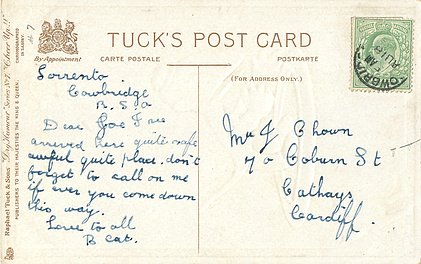 TUCK'S POST CARD
By Appointment
CARTE POSTALE
POSTKARTE
(FOR ADDRESS ONLY.)
Sorrento
Cowbridge
R.S.O
Dear
arrived here quite safe
awful quite place. don't
forget to call on me
if ever you come down
this way.
Love to all
B Cat.
Mr J Chown
70 Coburn St
Cathays
Cardiff.
Raphael Tuck & Sons' "Gay Humour" Series "Cheer Up.!!"
PUBLISHERS TO THEIR MAJESTIES THE KING & QUEEN.
CHROMOGRAPHED IN SAXONY
COWBRIDGE